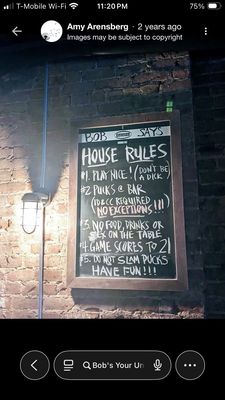 T-Mobile Wi-Fi 11:20 PM 75%
Amy Arensberg · 2 years ago
Images may be subject to copyright
BOB SAYS
HOUSE RULES
#1. PLAY NICE! (DON'T BE A DICK)
#2 PUCKS @ BAR
(ID & CC REQUIRED
NO EXCEPTIONS!!!)
#3 NO FOOD, DRINKS OR
SEX ON THE TABLE
#4. GAME SCORES TO 21
#5. DO NOT SLAM PUCKS
HAVE FUN!!!
Bob's Your Un